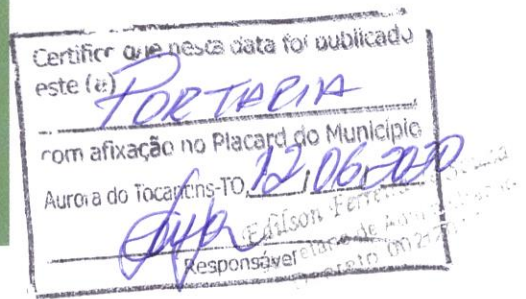 Certifico que nesta data foi publicado
este (a) PORTARIA
com afixação no Placard do Município
Aurora do Tocantins-TO, 12/06/2020
Edilson Ferreira
Secretário de
Responsável